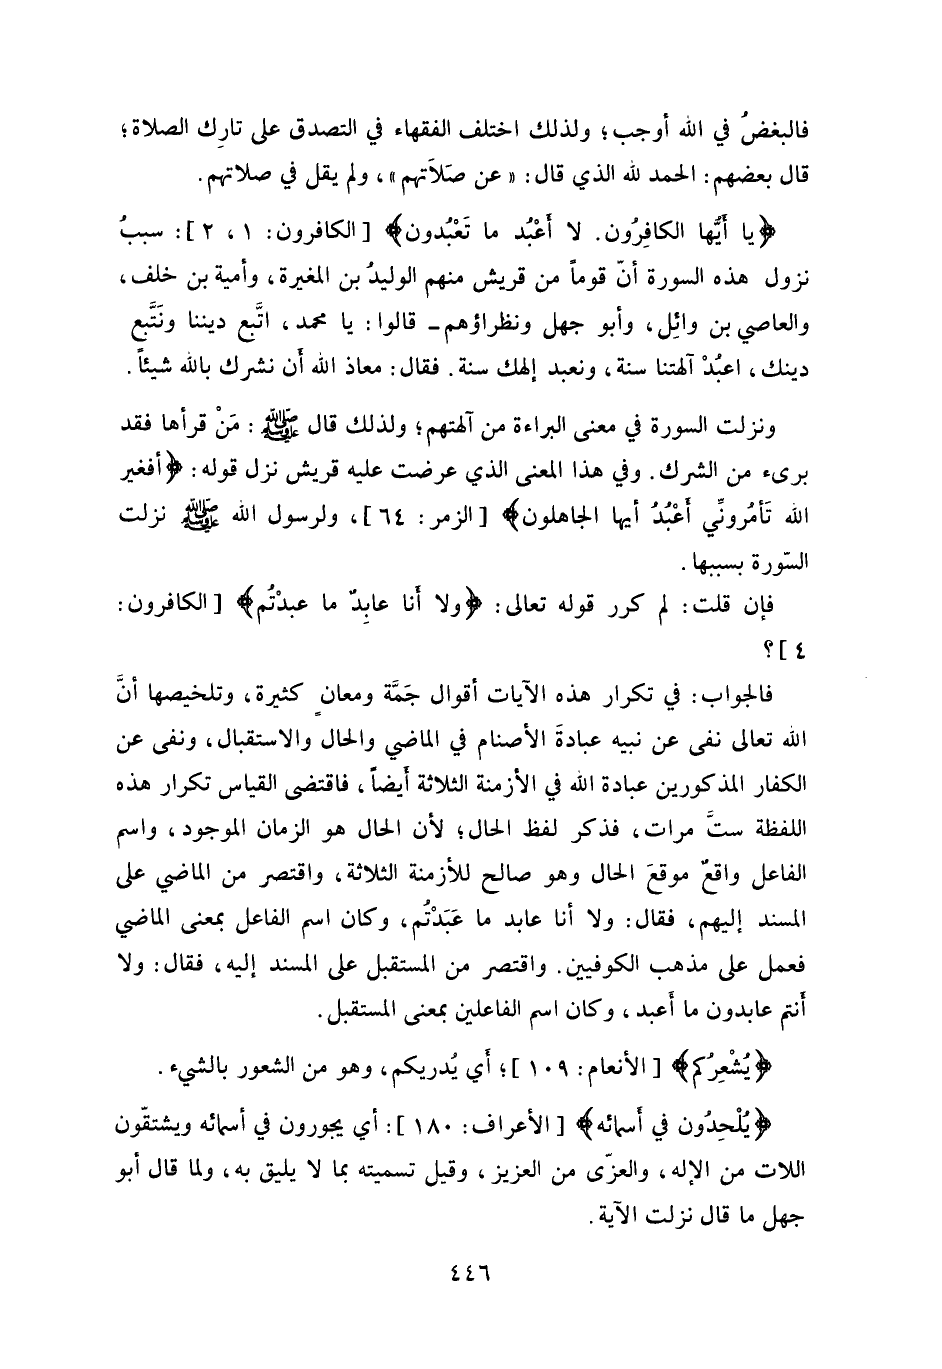 فالبغضُ في الله أوجب؛ ولذلك اختلف الفقهاء في التصدق على تارِك الصلاة؛
قال بعضهم: الحمد لله الذي قال: «عن صَلاَتهم»، ولم يقل في صلاتهم.
﴿يا أَيُّها الكافِرُون. لا أَعْبُد ما تَعْبُدون﴾ [الكافرون: ١، ٢]: سببُ
نزول هذه السورة أنّ قوماً من قريش منهم الوليدُ بن المغيرة، وأمية بن خلف،
والعاصي بن وائِل، وأبو جهل ونظراؤهم ـ قالوا: يا محمد، اتَّبع ديننا ونَتَّبع
دينك، اعبُدْ آلهتنا سنة، ونعبد إلهك سنة. فقال: معاذ الله أَن نشرك بالله شيئاً.
ونزلت السورة في معنى البراءة من آلهتهم؛ ولذلك قال ﷺ: مَنْ قرأها فقد
برىء من الشرك. وفي هذا المعنى الذي عرضت عليه قريش نزل قوله: ﴿أفغير
الله تَأمُرونِّي أَعْبُدُ أيها الجاهلون﴾ [الزمر: ٦٤]، ولرسول الله ﷺ نزلت
السّورة بسببها.
فإن قلت: لم كرر قوله تعالى: ﴿ولا أَنا عابِدٌ ما عبدْتُم﴾ [الكافرون:
٤]؟
فالجواب: في تكرار هذه الآيات أقوال جَمَّة ومعانٍ كثيرة، وتلخيصها أنَّ
الله تعالى نفى عن نبيه عبادةَ الأصنام في الماضي والحال والاستقبال، ونفى عن
الكفار المذكورين عبادة الله في الأزمنة الثلاثة أَيضاً، فاقتضى القياس تكرار هذه
اللفظة ستَّ مرات، فذكر لفظ الحال؛ لأن الحال هو الزمان الموجود، واسم
الفاعل واقعٌ موقعَ الحال وهو صالح للأزمنة الثلاثة، واقتصر من الماضي على
المسند إليهم، فقال: ولا أنا عابد ما عَبَدْتُم، وكان اسم الفاعل بمعنى الماضي
فعمل على مذهب الكوفيين. واقتصر من المستقبل على المسند إليه، فقال: ولا
أَنتم عابدون ما أَعبد، وكان اسم الفاعلين بمعنى المستقبل.
﴿يُشْعِرُكم﴾ [الأنعام: ١٠٩]؛ أَي يُدريكم، وهو من الشعور بالشيء.
﴿يُلْحِدُون في أَسمائه﴾ [الأعراف: ١٨٠]: أي يجورون في أسمائه ويشتقّون
اللات من الإله، والعزّى من العزيز، وقيل تسميته بما لا يليق به، ولما قال أبو
جهل ما قال نزلت الآية.
٤٤٦